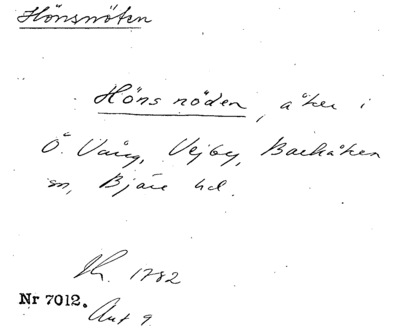 Hönsnöten
Höns nöden, åker i
Ö. Vång, Vejby, Backåkra
sn, Bjäre hd.
1782
Nr 7012.
Akt 9